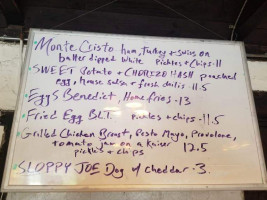 Monte Cristo ham, turkey + swiss on
batter dipped white pickles + chips · 11
SWEET Potato + CHORIZO HASH poached
egg, house salsa + fresh chilis - 11.5
Eggs Benedict, Home fries · 13
Fried Egg BLT pickles + chips - 11.5
Grilled Chicken Breast, Pesto Mayo, Provolone,
tomato jam on a Kaiser 12.5
pickles + chips
SLOPPY JOE Dog w/ cheddar - 3.